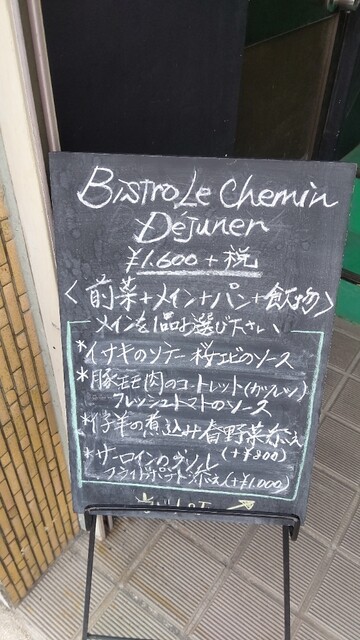 Bistro Le Chemin
Déjuner
¥1.600+税
〈前菜+メイン+パン+飲物〉
メインを1品お選び下さい
*イサキのソテー 桜エビのソース
*豚モモ肉のコートレット(カツレツ)
フレッシュトマトのソース
*仔羊の煮込み 春野菜添え
(+¥800)
*サーロインのグリエ
フライドポテト添え(+¥1.000)